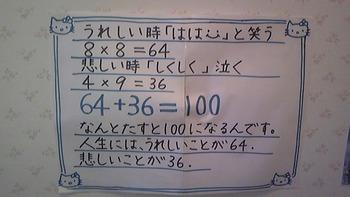 うれしい時「はは」と笑う
8×8=64
悲しい時「しくしく」泣く
4×9=36
64+36=100
なんとたすと100になるんです。
人生には、うれしいことが64.
悲しいことが36.